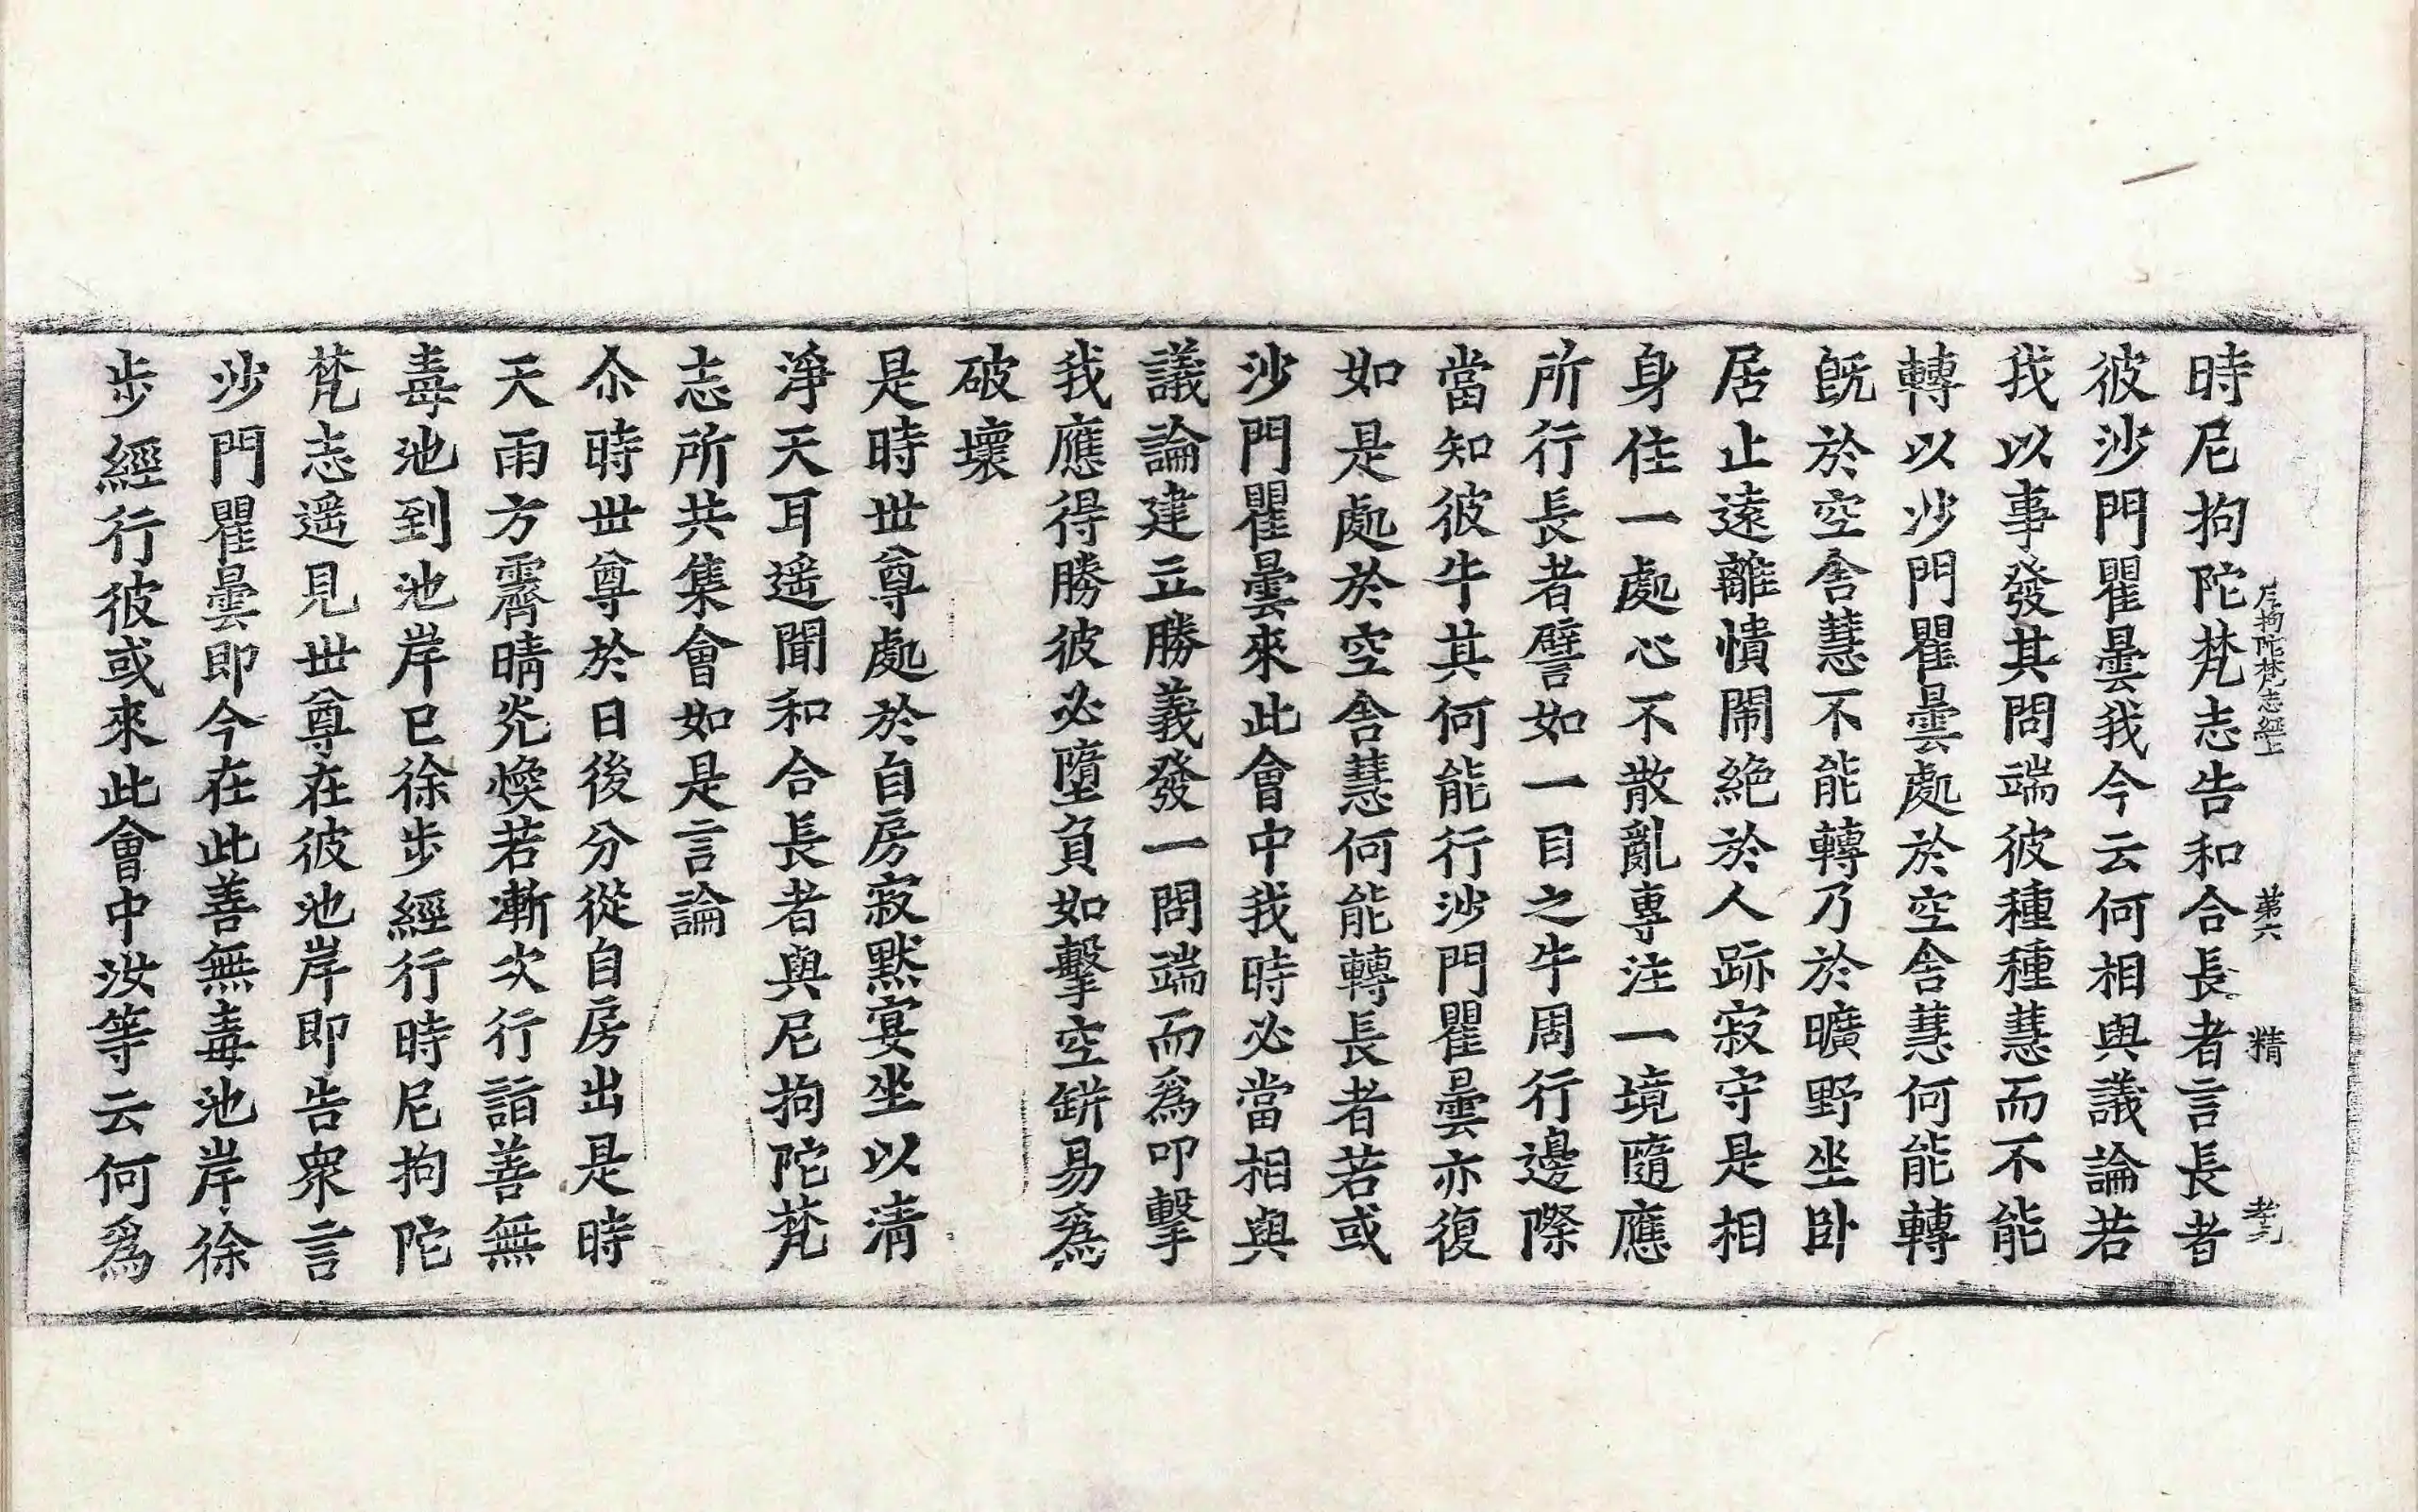 尼拘陁梵志經上 第六 精
時尼拘陁梵志告和合長者言長者
彼沙門瞿曇我今云何相與議論若
我以事發其問端彼種種慧而不能
轉以沙門瞿曇處於空舍慧何能轉
旣於空舍慧不能轉乃於曠野坐卧
居止遠離憒閙絶於人跡寂守是相
身住一處心不散亂專注一境隨應
所行長者譬如一目之牛周行邊際
當知彼牛其何能行沙門瞿曇亦復
如是處於空舍慧何能轉長者若或
沙門瞿曇來此會中我時必當相與
議論建立勝義發一問端而爲叩擊
我應得勝彼必墮負如擊空缾易爲
破壞
是時世尊處於自房寂默宴坐以清
淨天耳遥聞和合長者與尼拘陁梵
志所共集會如是言論
尒時世尊於日後分從自房出是時
天雨方霽晴光煥若漸次行詣善無
毒池到池岸已徐步經行時尼拘陁
梵志遥見世尊在彼池岸即告衆言
沙門瞿曇即今在此善無毒池岸徐
步經行彼或來此會中汝等云何爲